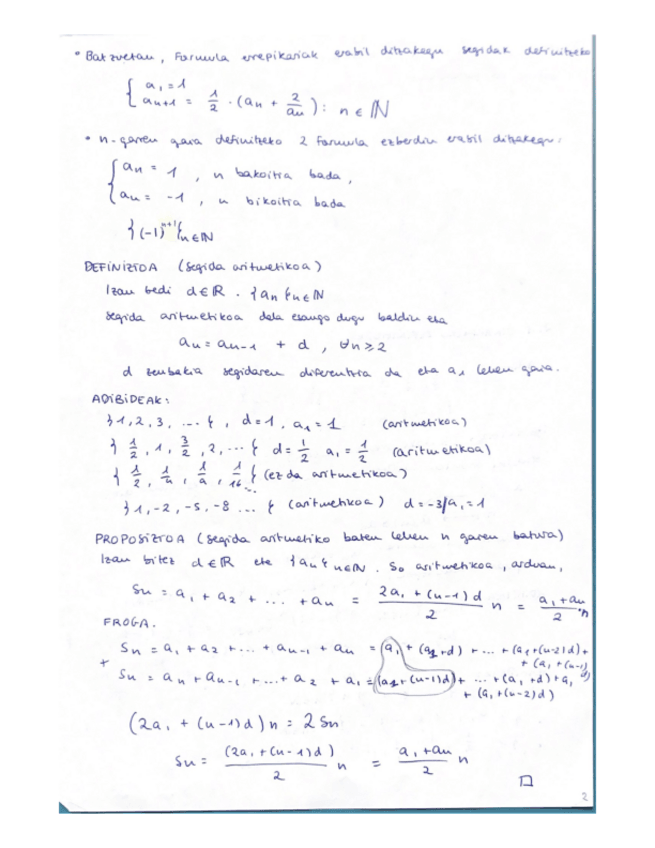 • Batzuetan, Formula errepikariak erabil ditzakegu segidak definitzeko
{ a₁ = 1
aₙ₊₁ = 1/2 · (aₙ + 2/aₙ) : n ∈ ℕ
• n-garren gaia definitzeko 2 Formula ezberdin erabil ditzakegu:
{ aₙ = 1 , n bakoitia bada,
aₙ = -1 , n bikoitia bada
{(-1)ⁿ⁺¹}ₙ∈ℕ
DEFINIZIOA (segida aritmetikoa)
Izan bedi d∈ℝ. {aₙ}ₙ∈ℕ
segida aritmetikoa dela esango dugu baldin eta
aₙ = aₙ₋₁ + d , ∀n ≥ 2
d zenbakia segidaren diferentzia da eta a₁ lehen gaia.
ADIBIDEAK:
{1, 2, 3, ... }, d=1, a₁ = 1 (aritmetikoa)
{1/2, 1, 3/2, 2, ... } d = 1/2 a₁ = 1/2 (aritmetikoa)
{1/2, 1/4, 1/8, 1/16 ...} (ez da aritmetikoa)
{1, -2, -5, -8 ... } (aritmetikoa) d = -3/a₁ = 1
PROPOSIZIOA (segida aritmetiko baten lehen n garen batura)
Izan bitez d∈ℝ eta {aₙ}ₙ∈ℕ. So aritmetikoa, orduan,
Sₙ = a₁ + a₂ + ... + aₙ = (2a₁ + (n-1)d)/2 n = (a₁ + aₙ)/2 · n
FROGA.
Sₙ = a₁ + a₂ + ... + aₙ₋₁ + aₙ = (a₁ + (a₁+d) + ... + (a₁+(n-2)d) +
+ (a₁ + (n-1)d)
+
Sₙ = aₙ + aₙ₋₁ + ... + a₂ + a₁ = (a₁+(n-1)d) + ... + (a₁+d) + a₁
+ (a₁+(n-2)d)
(2a₁ + (n-1)d) n = 2Sₙ
Sₙ = (2a₁ + (n-1)d)/2 n = (a₁ + aₙ)/2 n
□
2